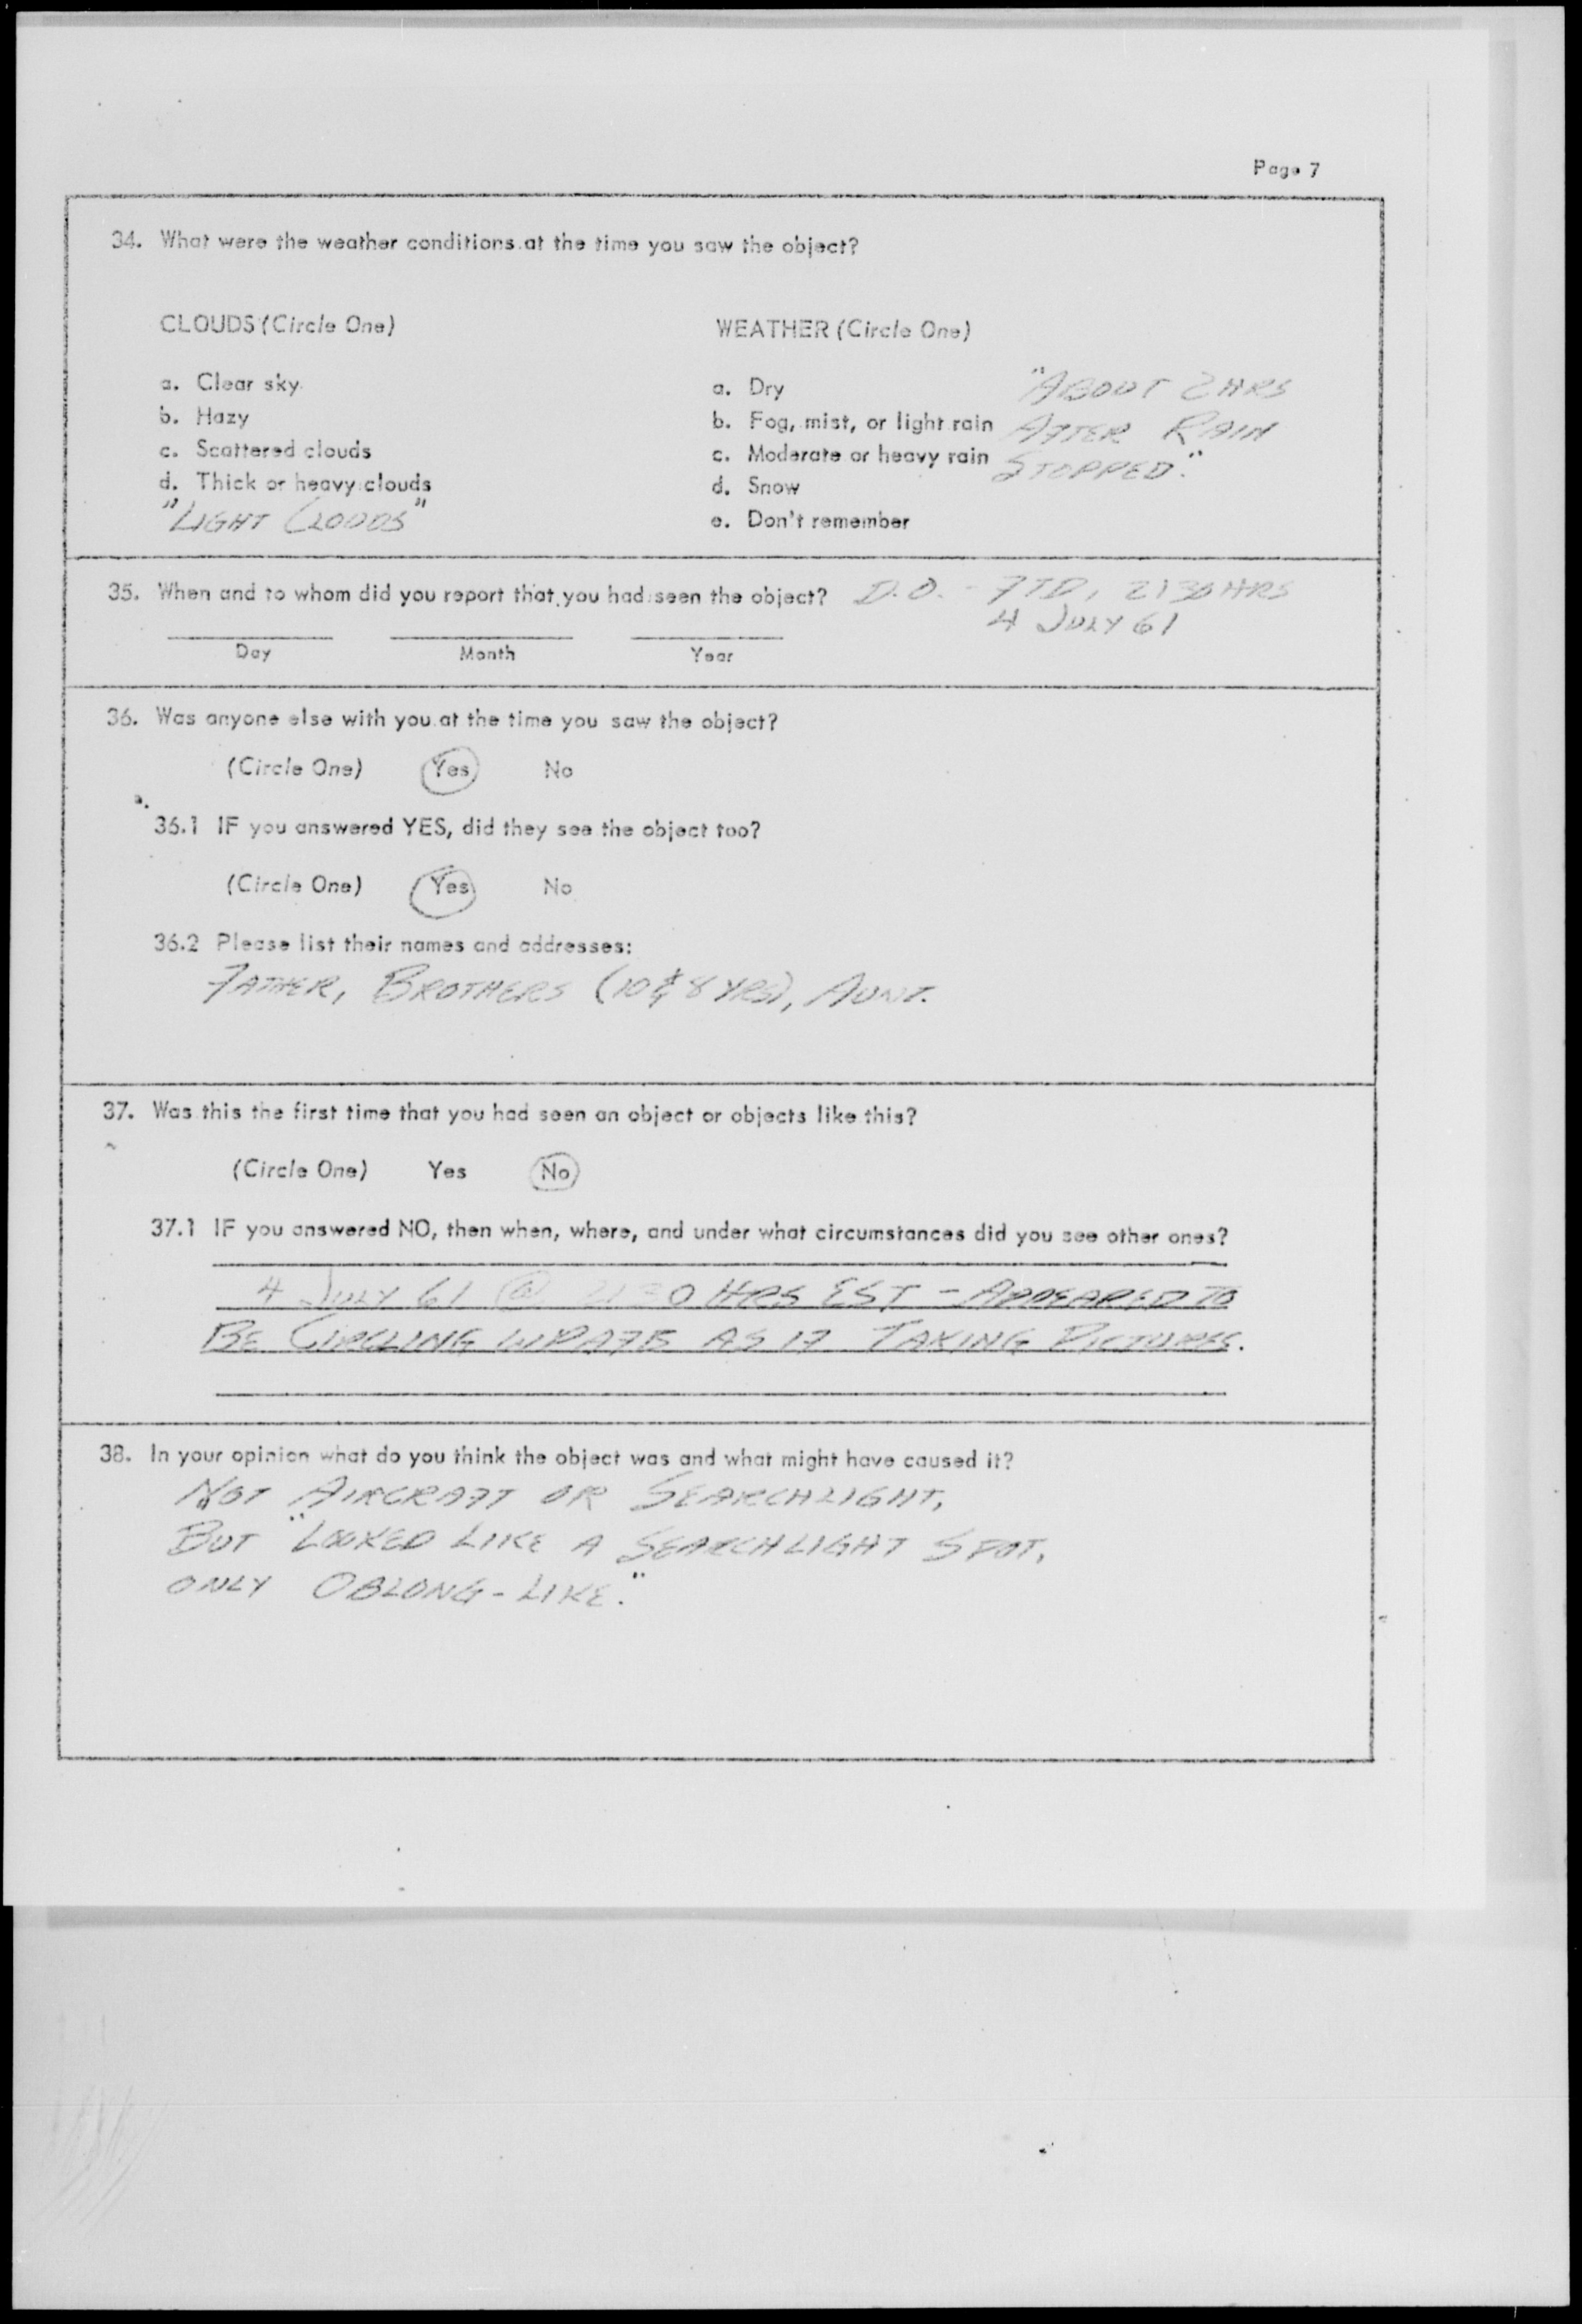 Page 7
34. What were the weather conditions at the time you saw the object?
CLOUDS (Circle One)
a. Clear sky
b. Hazy
c. Scattered clouds
d. Thick or heavy clouds
"LIGHT CLOUDS"
WEATHER (Circle One)
a. Dry
b. Fog, mist, or light rain
c. Moderate or heavy rain
d. Snow
e. Don't remember
"ABOUT 2 HRS
AFTER RAIN
STOPPED."
35. When and to whom did you report that you had seen the object? D.O. - FTD, 2130 HRS
4 JULY 61
Day Month Year
36. Was anyone else with you at the time you saw the object?
(Circle One) Yes No
36.1 IF you answered YES, did they see the object too?
(Circle One) Yes No
36.2 Please list their names and addresses:
FATHER, BROTHERS (10 & 8 YRS), AUNT.
37. Was this the first time that you had seen an object or objects like this?
(Circle One) Yes No
37.1 IF you answered NO, then when, where, and under what circumstances did you see other ones?
4 JULY 61 @ HRS EST - APPEARED TO
BE CIRCLING WPAFB AS IF TAKING PICTURES.
38. In your opinion what do you think the object was and what might have caused it?
NOT AIRCRAFT OR SEARCHLIGHT,
BUT "LOOKED LIKE A SEARCHLIGHT SPOT,
ONLY OBLONG-LIKE."